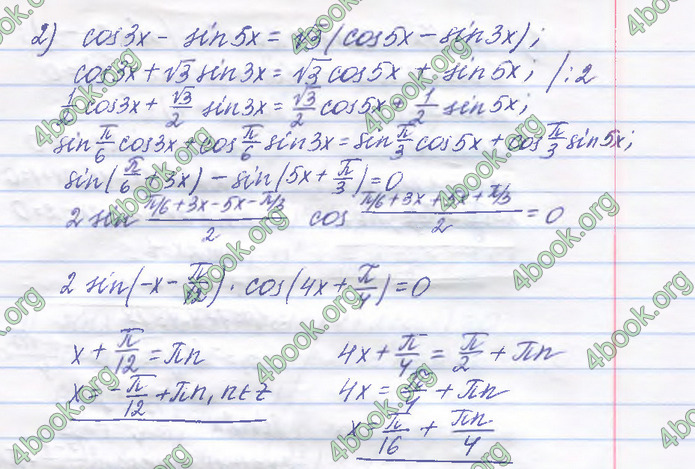 2) cos3x - sin5x = √3 (cos5x - sin3x);
cos3x + √3 sin3x = √3 cos5x + sin5x; /:2
1/2 cos3x + √3/2 sin3x = √3/2 cos5x + 1/2 sin5x;
sin π/6 cos3x + cos π/6 sin3x = sin π/3 cos5x + cos π/3 sin5x;
sin(π/6 + 3x) - sin(5x + π/3) = 0
2 sin (π/6 + 3x - 5x - π/3)/2 cos (π/6 + 3x + 5x + π/3)/2 = 0
2 sin(-x - π/12) · cos(4x + π/4) = 0
x + π/12 = πn
x = -π/12 + πn, n∈z
4x + π/4 = π/2 + πn
4x = π/4 + πn
x = π/16 + πn/4
4book.org